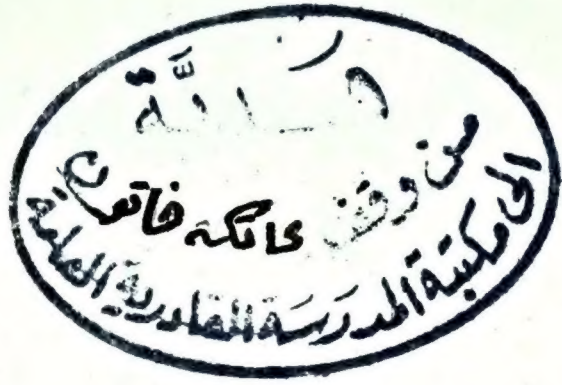 من وقف عاتكه خاتون
الى مكتبة المدرسة القادرية العامة